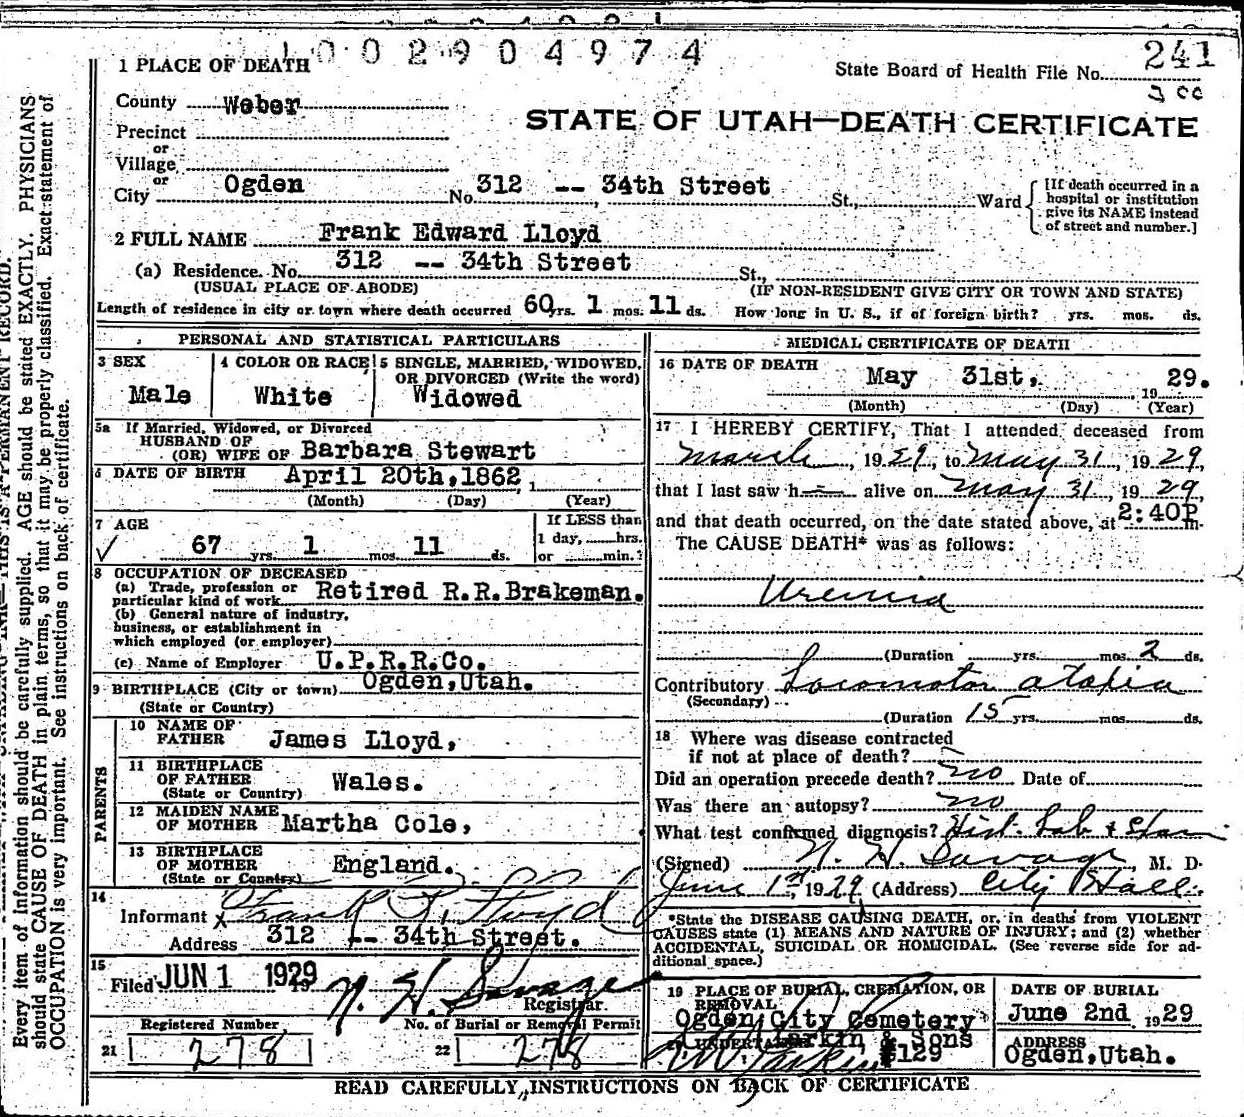 1002904974
241
State Board of Health File No.
300
1 PLACE OF DEATH
County Weber
STATE OF UTAH—DEATH CERTIFICATE
Precinct
or
Village
or
City Ogden No. 312 -- 34th Street St., Ward
[If death occurred in a hospital or institution give its NAME instead of street and number.]
2 FULL NAME Frank Edward Lloyd
(a) Residence. No. 312 -- 34th Street St.,
(USUAL PLACE OF ABODE) (IF NON-RESIDENT GIVE CITY OR TOWN AND STATE)
Length of residence in city or town where death occurred 60 yrs. 1 mos. 11 ds. How long in U. S., if of foreign birth? yrs. mos. ds.
PERSONAL AND STATISTICAL PARTICULARS
3 SEX
Male
4 COLOR OR RACE
White
5 SINGLE, MARRIED, WIDOWED, OR DIVORCED (Write the word)
Widowed
5a If Married, Widowed, or Divorced
HUSBAND OF
(OR) WIFE OF Barbara Stewart
6 DATE OF BIRTH April 20th, 1862
(Month) (Day) (Year)
7 AGE
67 yrs. 1 mos. 11 ds.
If LESS than
1 day, hrs.
or min.?
8 OCCUPATION OF DECEASED
(a) Trade, profession or
particular kind of work Retired R.R.Brakeman.
(b) General nature of industry,
business, or establishment in
which employed (or employer)
(c) Name of Employer U.P.R.R.Co.
9 BIRTHPLACE (City or town) Ogden, Utah.
(State or Country)
PARENTS
10 NAME OF
FATHER James Lloyd,
11 BIRTHPLACE
OF FATHER Wales.
(State or Country)
12 MAIDEN NAME
OF MOTHER Martha Cole,
13 BIRTHPLACE
OF MOTHER England.
(State or Country)
14
Informant x Frank Lloyd
Address 312 -- 34th Street.
15
Filed JUN 1 1929 N. H. Savage
Registrar
Registered Number No. of Burial or Removal Permit
21 278 22 278
MEDICAL CERTIFICATE OF DEATH
16 DATE OF DEATH May 31st, 1929.
(Month) (Day) (Year)
17 I HEREBY CERTIFY, That I attended deceased from
March, 1929, to May 31 1929,
that I last saw h alive on May 31, 1929,
and that death occurred, on the date stated above, at 2:40P m.
The CAUSE DEATH* was as follows:
Uremia
(Duration yrs. mos. 2 ds.
Contributory Locomotor atoxia
(Secondary)
(Duration 15 yrs. mos. ds.
18 Where was disease contracted
if not at place of death?
Did an operation precede death? no Date of
Was there an autopsy? no
What test confirmed diagnosis? Hist. Lab +
(Signed) N. H. Savage, M. D.
June 1st, 1929 (Address) City Hall.
*State the DISEASE CAUSING DEATH, or, in deaths from VIOLENT
CAUSES state (1) MEANS AND NATURE OF INJURY; and (2) whether
ACCIDENTAL, SUICIDAL OR HOMICIDAL. (See reverse side for ad-
ditional space.)
19 PLACE OF BURIAL, CREMATION, OR
REMOVAL
Ogden City Cemetery
DATE OF BURIAL
June 2nd, 1929
UNDERTAKER Larkin & Sons
#129
ADDRESS
Ogden, Utah.
READ CAREFULLY, INSTRUCTIONS ON BACK OF CERTIFICATE
Every item of information should be carefully supplied. AGE should be stated EXACTLY. PHYSICIANS
should state CAUSE OF DEATH in plain terms, so that it may be properly classified. Exact statement of
OCCUPATION is very important. See instructions on back of certificate.
THIS IS A PERMANENT RECORD.